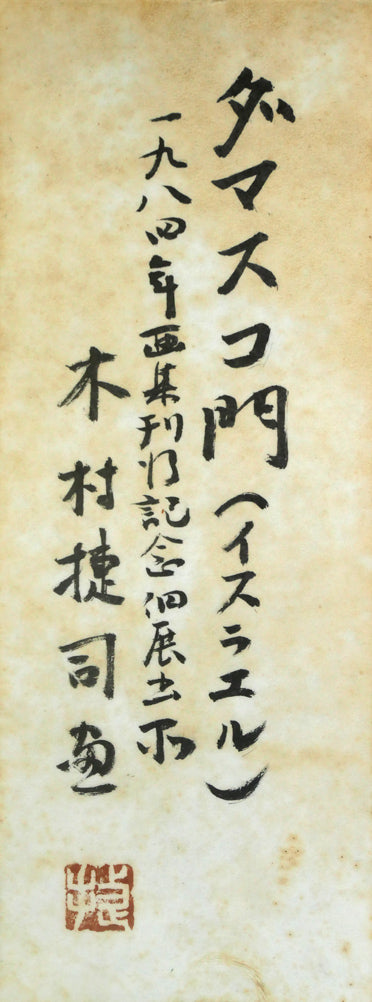 ダマスコ門(イスラエル)
一九八四年画集刊行記念個展出示
木村捷司画
捷